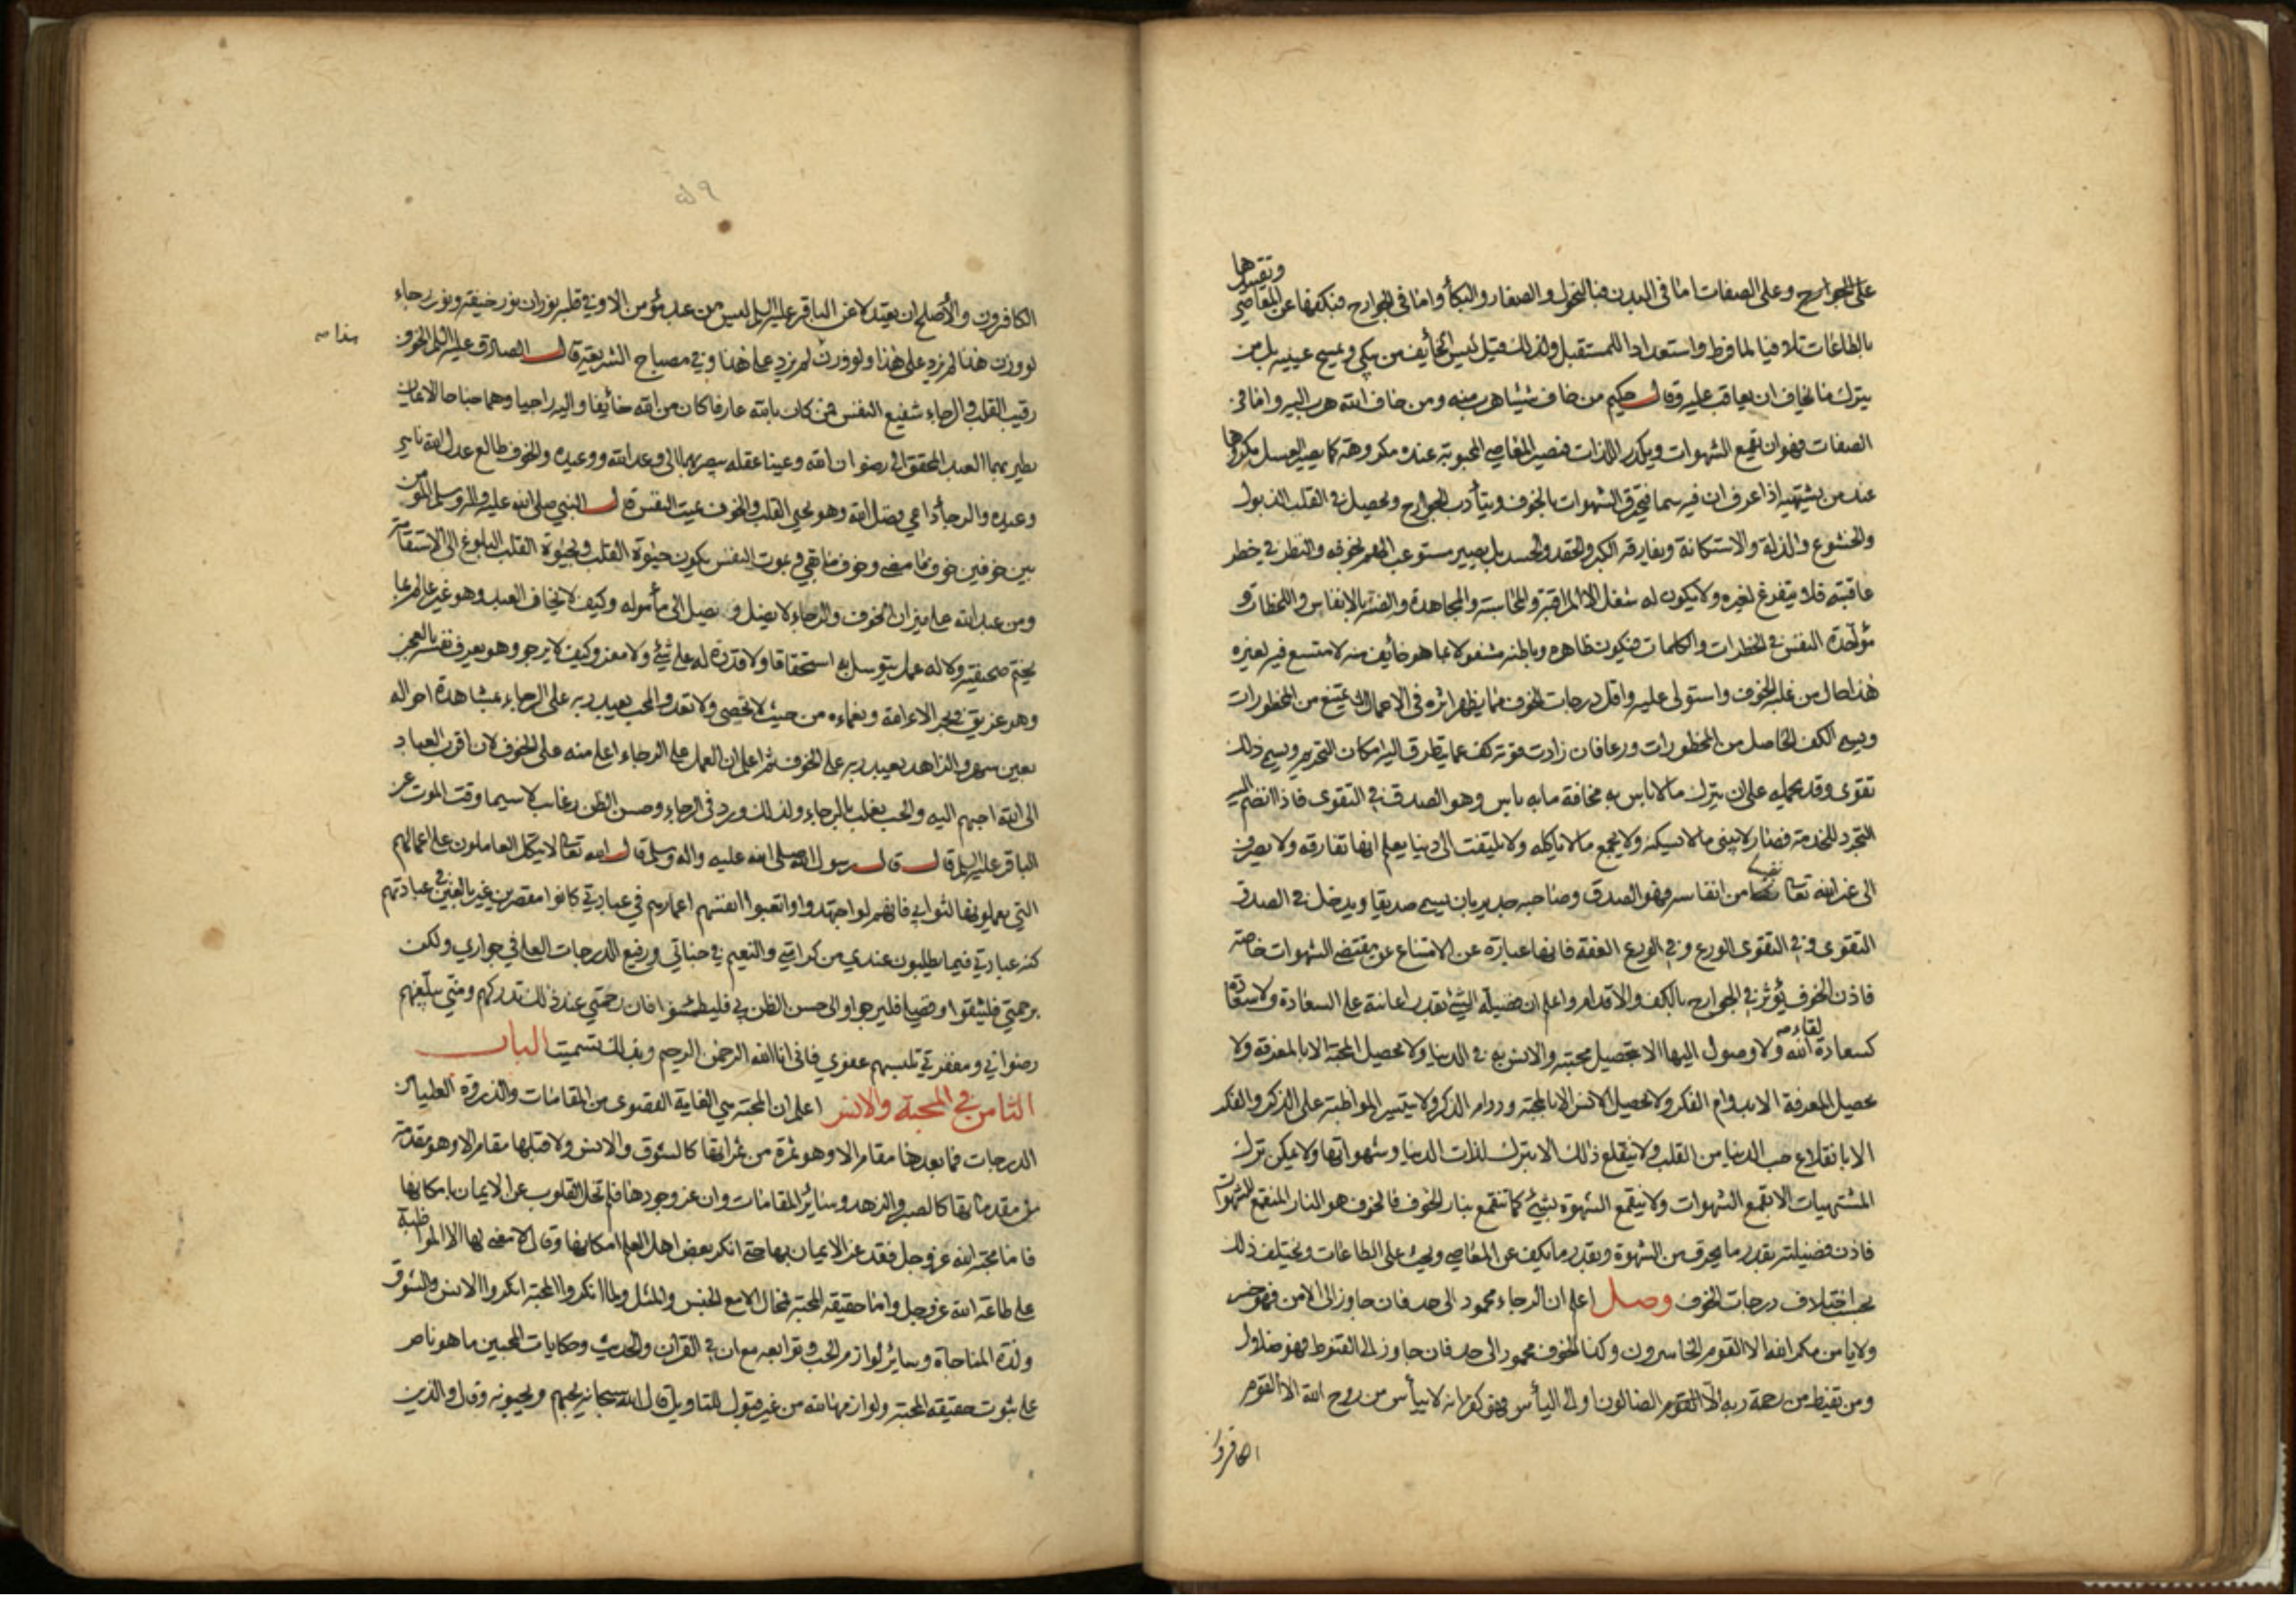 وتقيدها
على الجوارح وعلى الصفات اما في البدن فبالنحول والصفار والبكاء واما في الجوارح فبكفها عن المعاصي
بالطاعات تلافيا لما فرط واستعدادا للمستقبل ولذلك قيل ليس الخايف من يبكي ويمسح عينيه بل من
يترك ما يخاف ان يعاقب عليه وقال حكيم من خاف شيئا هرب منه ومن خاف الله هرب اليه واما في
الصفات فهو ان يقمع الشهوات ويكدر اللذات فتصير المعاصي المحبوبة عنده مكروهة كما يصير العسل مكروها
عند من يشتهيه اذا عرف ان فيه سما فتحترق الشهوات بالخوف ويتأدب الجوارح ويحصل في القلب الذبول
والخشوع والذلة والاستكانة ويفارقه الكبر والحقد والحسد بل يصير مستوعب الهم بخوفه والنظر في خطر
عاقبته فلا يتفرغ لغيره ولا يكون له شغل الا المراقبة والمحاسبة والمجاهدة والضنة بالانفاس واللحظات و
مؤاخذة النفس في الخطرات والكلمات فيكون ظاهره وباطنه مشغولا بما هو خايف منه لا متسع فيه لغيره
هذا حال من غلبه الخوف واستولى عليه واقل درجات الخوف مما يظهر اثره في الاعمال ان يمتنع من المحظورات
ويسمى الكف الحاصل من المحظورات ورعا فان زادت قوته كف عما يتطرق اليه امكان التحريم ويسمى ذلك
تقوى وقد يحمله على ان يترك ما لا باس به مخافة ما به باس وهو الصدق في التقوى فاذا انضم اليه
التجرد للخدمة فصار لا يبني ما لا يسكنه ولا يجمع ما لا ياكله ولا يلتفت الى دنيا يعلم انها تفارقه ولا يصرف
الى غير الله تعالى نفسا من انفاسه فهو الصدق وصاحبه جدير بان يسمى صديقا ويدخل في الصدق
التقوى وفي التقوى الورع وفي الورع العفة فانها عبارة عن الامتناع عن مقتضى الشهوات خاصة
فاذن الخوف يؤثر في الجوارح بالكف والاقدام واعلم ان فضيلة الشيء بقدر اعانته على السعادة ولا سعادة
كسعادة لقاء الله ولا وصول اليها الا بتحصيل محبته والانس به في الدنيا ولا يحصل المحبة الا بالمعرفة ولا
يحصل المعرفة الا بدوام الفكر ولا يحصل الانس الا بالمحبة ودوام الذكر ولا يتيسر المواظبة على الذكر والفكر
الا بانقلاع حب الدنيا من القلب ولا ينقلع ذلك الا بترك لذات الدنيا وشهواتها ولا يمكن ترك
المشتهيات الا بقمع الشهوات ولا ينقمع الشهوة بشيء كما تنقمع بنار الخوف فالخوف هو النار للشهوات
فاذن فضيلته بقدر ما يحرق من الشهوة وبقدر ما يكف عن المعاصي ويحث على الطاعات ويختلف ذلك
بحسب اختلاف درجات الخوف وصل اعلم ان الرجاء محمود الى حد فان جاوز الى الامن فهو خسر
ولا يامن مكر الله الا القوم الخاسرون وكذا الخوف محمود الى حد فان جاوز الى القنوط فهو ضلال
ومن يقنط من رحمة ربه الا القوم الضالون او الى اليأس فهو كفر انه لا ييأس من روح الله الا القوم
الكافرون
الكافرون والأصلح ان يعتدلا عن الباقر عليه السلم ليس من عبد مؤمن الا وفي قلبه نوران نور خيفة ونور رجاء
لو وزن هذا لم يزد على هذا ولو وزن لم يزد على هذا وفي مصباح الشريعة قال الصادق عليه السلم الخوف
هذا
رقيب القلب والرجاء شفيع النفس من كان بالله عارفا كان من الله خائفا واليه راجيا وهما جناحا الايمان
يطير بهما العبد المحقق الى رضوان الله وعينا عقله يبصر بهما الى وعد الله ووعيده والخوف طالع عدل الله ناهي
وعيده والرجاء داعي فضل الله وهو يحيي القلب والخوف يميت النفس قال النبي صلى الله عليه واله وسلم المؤمن
بين خوفين خوف مما مضى وخوف ما بقي وبموت النفس يكون حيوة القلب وبحيوة القلب البلوغ الى الاستقامة
ومن عبد الله على ميزان الخوف والرجاء لا يضل ويصل الى مأموله وكيف لا يخاف العبد وهو غير عالم بما
يختم صحيفته ولا له عمل يتوسل به استحقاقا ولا قدرة له على شيء ولا مفر وكيف لا يرجو وهو يعرف نفسه بالعجز
وهو غريق في بحر الاء الله ونعمائه من حيث لا تحصى ولا تعد والمحب يعبد ربه على الرجاء بمشاهدة احواله
بعين سهر والزاهد يعبد ربه على الخوف ثم اعلم ان العمل على الرجاء اعلى منه على الخوف لان اقرب العباد
الى الله احبهم اليه والحب يغلب بالرجاء ولذلك ورد في الرجاء وحسن الظن رغائب لا سيما وقت الموت عن
الباقر عليه السلم قال قال رسول الله صلى الله عليه واله وسلم قال الله تعالى لا يتكل العاملون على اعمالهم
التي يعملونها لثوابي فانهم لو اجتهدوا واتعبوا انفسهم اعمارهم في عبادتي كانوا مقصرين غير بالغين في عبادتهم
كنه عبادتي فيما يطلبون عندي من كرامتي والنعيم في جناتي ورفيع الدرجات العلى في جواري ولكن
برحمتي فليثقوا وفضلي فليرجوا والى حسن الظن بي فليطمئنوا فان رحمتي عند ذلك تدركهم ومني يبلغهم
رضواني ومغفرتي تلبسهم عفوي فاني انا الله الرحمن الرحيم وبذلك تسميت الباب
الثامن في المحبة والانس اعلم ان المحبة هي الغاية القصوى من المقامات والذروة العليا من
الدرجات فما بعدها مقام الا وهو ثمرة من ثمراتها كالشوق والانس ولا قبلها مقام الا وهو مقدمة
من مقدماتها كالصبر والزهد وساير المقامات وان عز وجودها فلم تخل القلوب عن الايمان بامكانها
فاما محبة الله عز وجل فقد عز الايمان بها حتى انكر بعض اهل العلم امكانها وقال لا معنى لها الا المواظبة
على طاعة الله عز وجل واما حقيقة المحبة فمحال الا مع الجنس والمثل ولما انكروا المحبة انكروا الانس والشوق
ولذة المناجاة وساير لوازم الحب وتوابعه مع ان في القرآن والحديث وحكايات المحبين ما هو ناص
على ثبوت حقيقة المحبة ولوازمها لله من غير قبول للتاويل قال الله سبحانه يحبهم ويحبونه وقال والذين